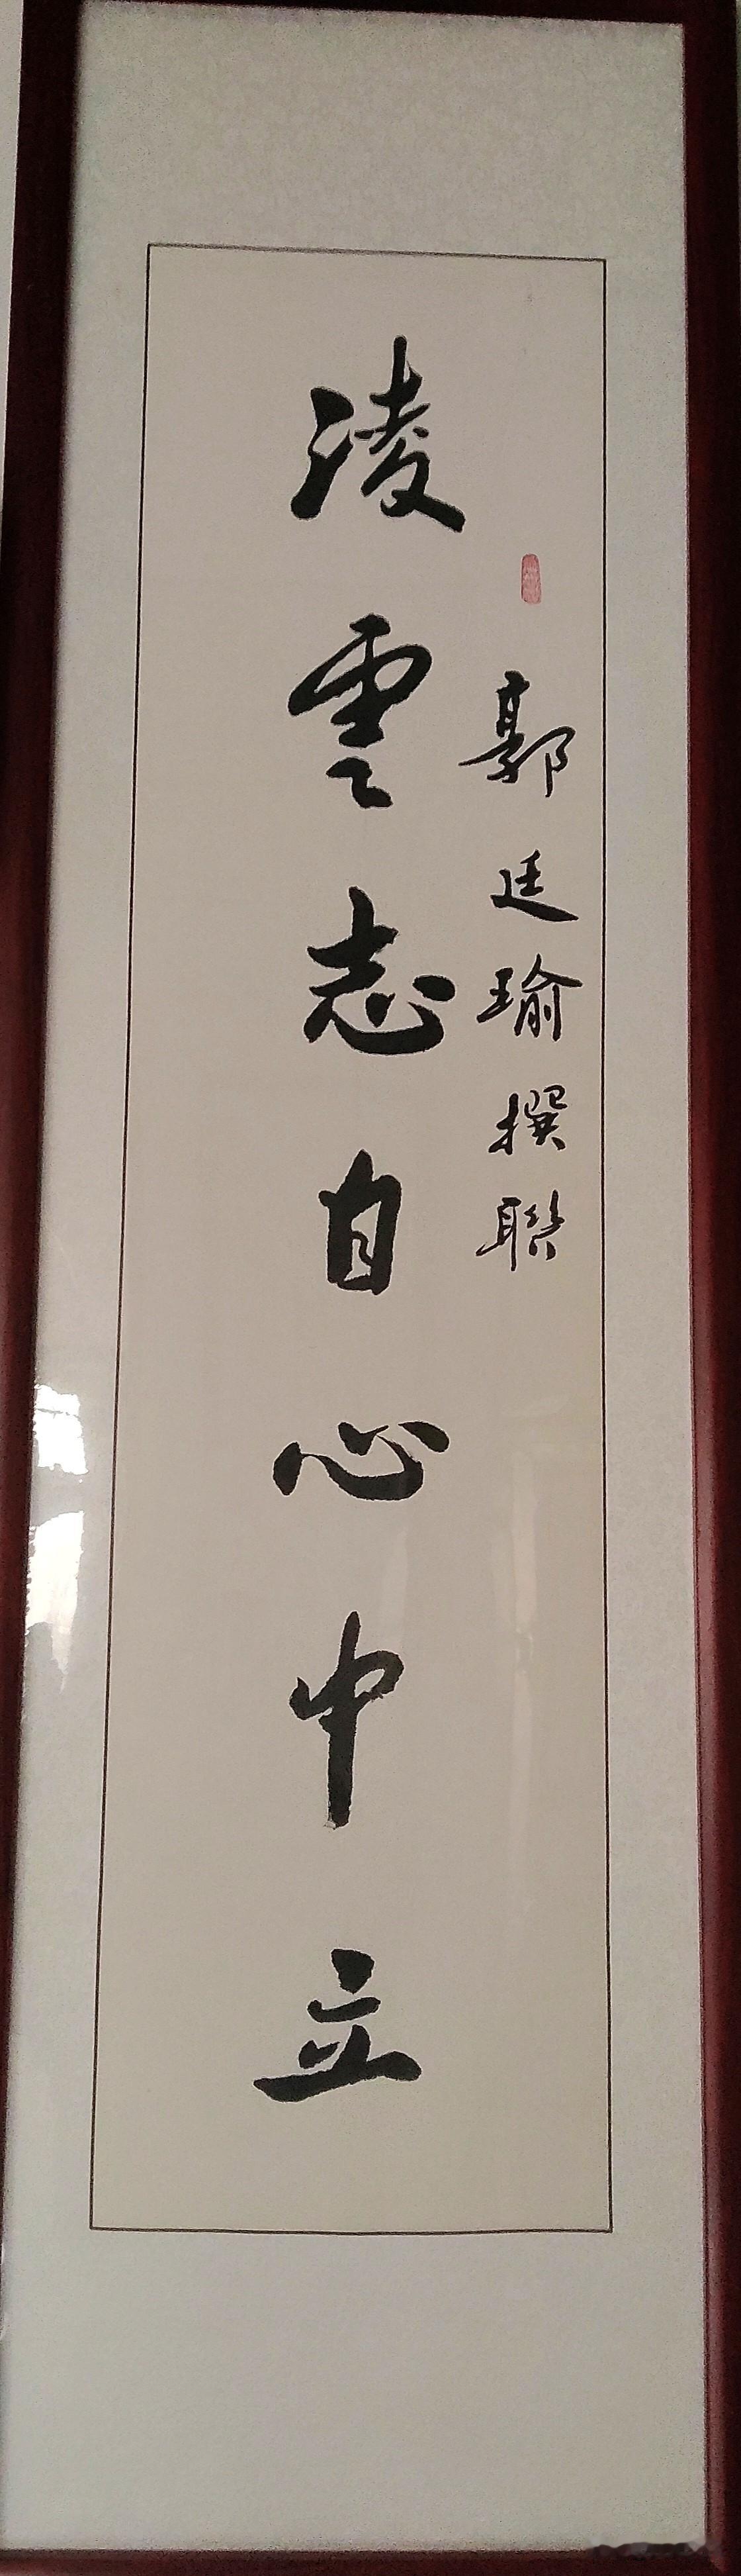 郭廷瑜撰联
凌雲志自心中立